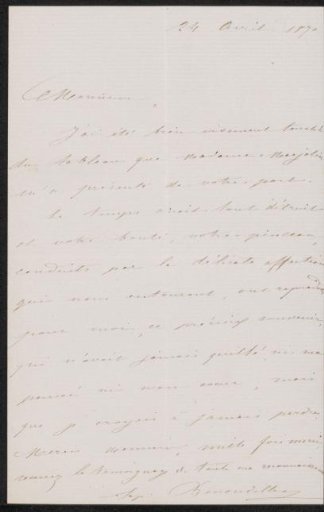 24 Avril 187
Monsieur,
J'ai été bien vivement touché
du tableau que Madame Marjolin
m'a présenté de votre part.
Le temps avait tout détruit
et votre bonté, votre pinceau,
conduits par la délicate affection
qui nous entourent, ont
pour moi, ce précieux souvenir,
qui n'avait jamais quitté ni ma
pensée ni mon cœur, mais
que je croyais à jamais perdu.
Merci Monsieur, mille fois merci,
recevez le témoignage de toute ma